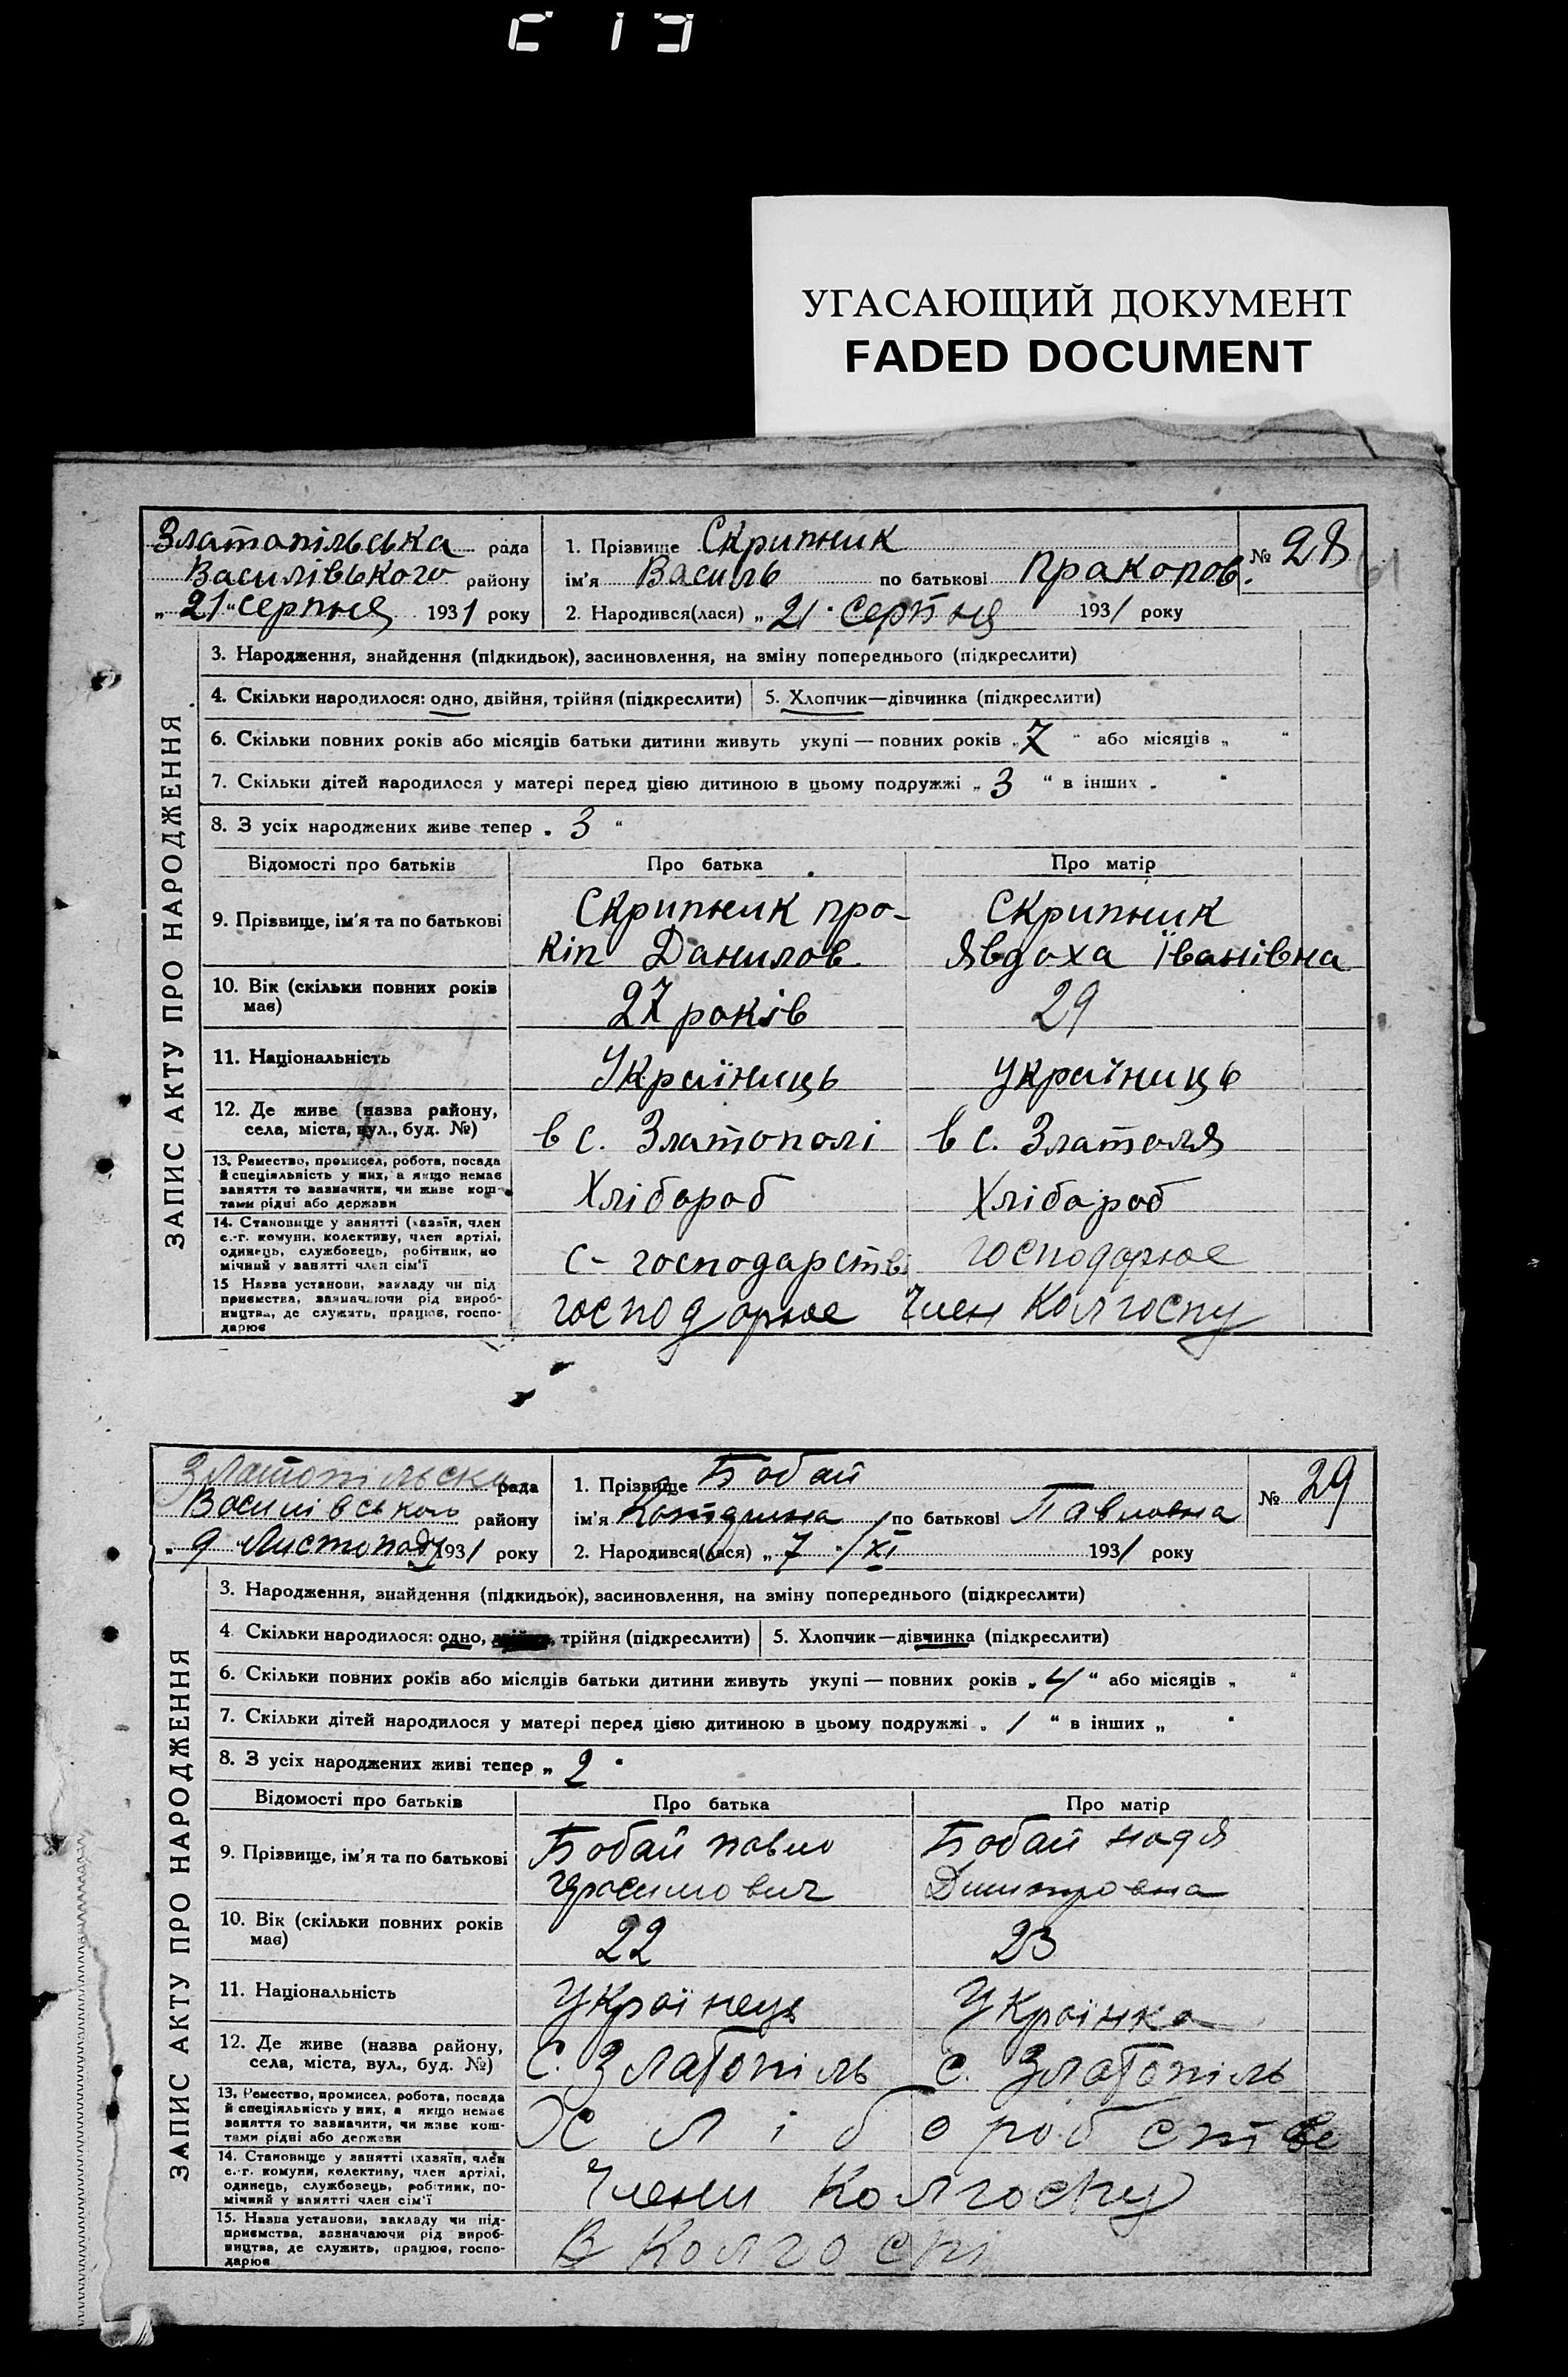 УГАСАЮЩИЙ ДОКУМЕНТ
FADED DOCUMENT
Златопільська рада
Василівського району
„21“ серпня 1931 року
1. Прізвище Скрипник
ім'я Василь по батькові Пракопов.
№ 28
61
2. Народився(лася) „21“ Серпня 1931 року
ЗАПИС АКТУ ПРО НАРОДЖЕННЯ
3. Народження, знайдення (підкидьок), засиновлення, на зміну попереднього (підкреслити)
4. Скільки народилося: одно, двійня, трійня (підкреслити) 5. Хлопчик—дівчинка (підкреслити)
6. Скільки повних років або місяців батьки дитини живуть укупі — повних років „7“ або місяців „ “
7. Скільки дітей народилося у матері перед цією дитиною в цьому подружжі „3“ в інших „ “
8. З усіх народжених живе тепер „3“
Відомості про батьків Про батька Про матір
9. Прізвище, ім'я та по батькові
Скрипник про-
кіп Данилов.
Скрипник
Явдоха Іванівна
10. Вік (скільки повних років має)
27 років
29
11. Національність
Україниць
україниць
12. Де живе (назва району,
села, міста, вул., буд. №)
в с. Златополі
в с. Златоля
13. Ремество, промисел, робота, посада
й спеціяльність у них, а якщо немає
заняття то зазначити, чи живе кош-
тами рідні або держави
Хлібороб
Хлібароб
14. Становище у занятті (хазяїн, член
с.-г. комуни, колективу, член артілі,
одинець, службовець, робітник, по
мічний у занятті член сім'ї
с-господарстві
господорює
15 Назва установи, закладу чи під
приємства, зазначаючи рід вироб-
ництва, де служить, працює, госпо-
дарює
господорює
Член Колгоспу
Златопільска рада
Василівського району
„9 Листопаду 1931 року
1. Прізвище Бобай
ім'я Катдлина по батькові Павловна
№ 29
2. Народився(лася) „7“/XI 1931 року
ЗАПИС АКТУ ПРО НАРОДЖЕННЯ
3. Народження, знайдення (підкидьок), засиновлення, на зміну попереднього (підкреслити)
4 Скільки народилося: одно, трійня (підкреслити) 5. Хлопчик—дівчинка (підкреслити)
6. Скільки повних років або місяців батьки дитини живуть укупі — повних років „4“ або місяців „ “
7. Скільки дітей народилося у матері перед цією дитиною в цьому подружжі „1“ в інших „ “
8. З усіх народжених живі тепер „2“
Відомості про батьків Про батька Про матір
9. Прізвище, ім'я та по батькові
Бобай павло
Гарасимович
Бобай надя
Димитровна
10. Вік (скільки повних років
має)
22
23
11. Національність
Українець
Українка
12. Де живе (назва району,
села, міста, вул., буд. №)
С. Златопіль
С. Златопіль
13. Ремество, промисел, робота, посада
й спеціяльність у них, а якщо немає
заняття то зазначити, чи живе кош-
тами рідні або держави
Хліборобство
14. Становище у занятті (хазяїн, член
с.-г. комуни, колективу, член артілі,
одинець, службовець, робітник, по-
мічний у занятті член сім'ї
Члени Колгоспу
15. Назва установи, закладу чи під-
приємства, зазначаючи рід вироб-
ництва, де служить, працює, госпо-
дарює
В Колгоспі